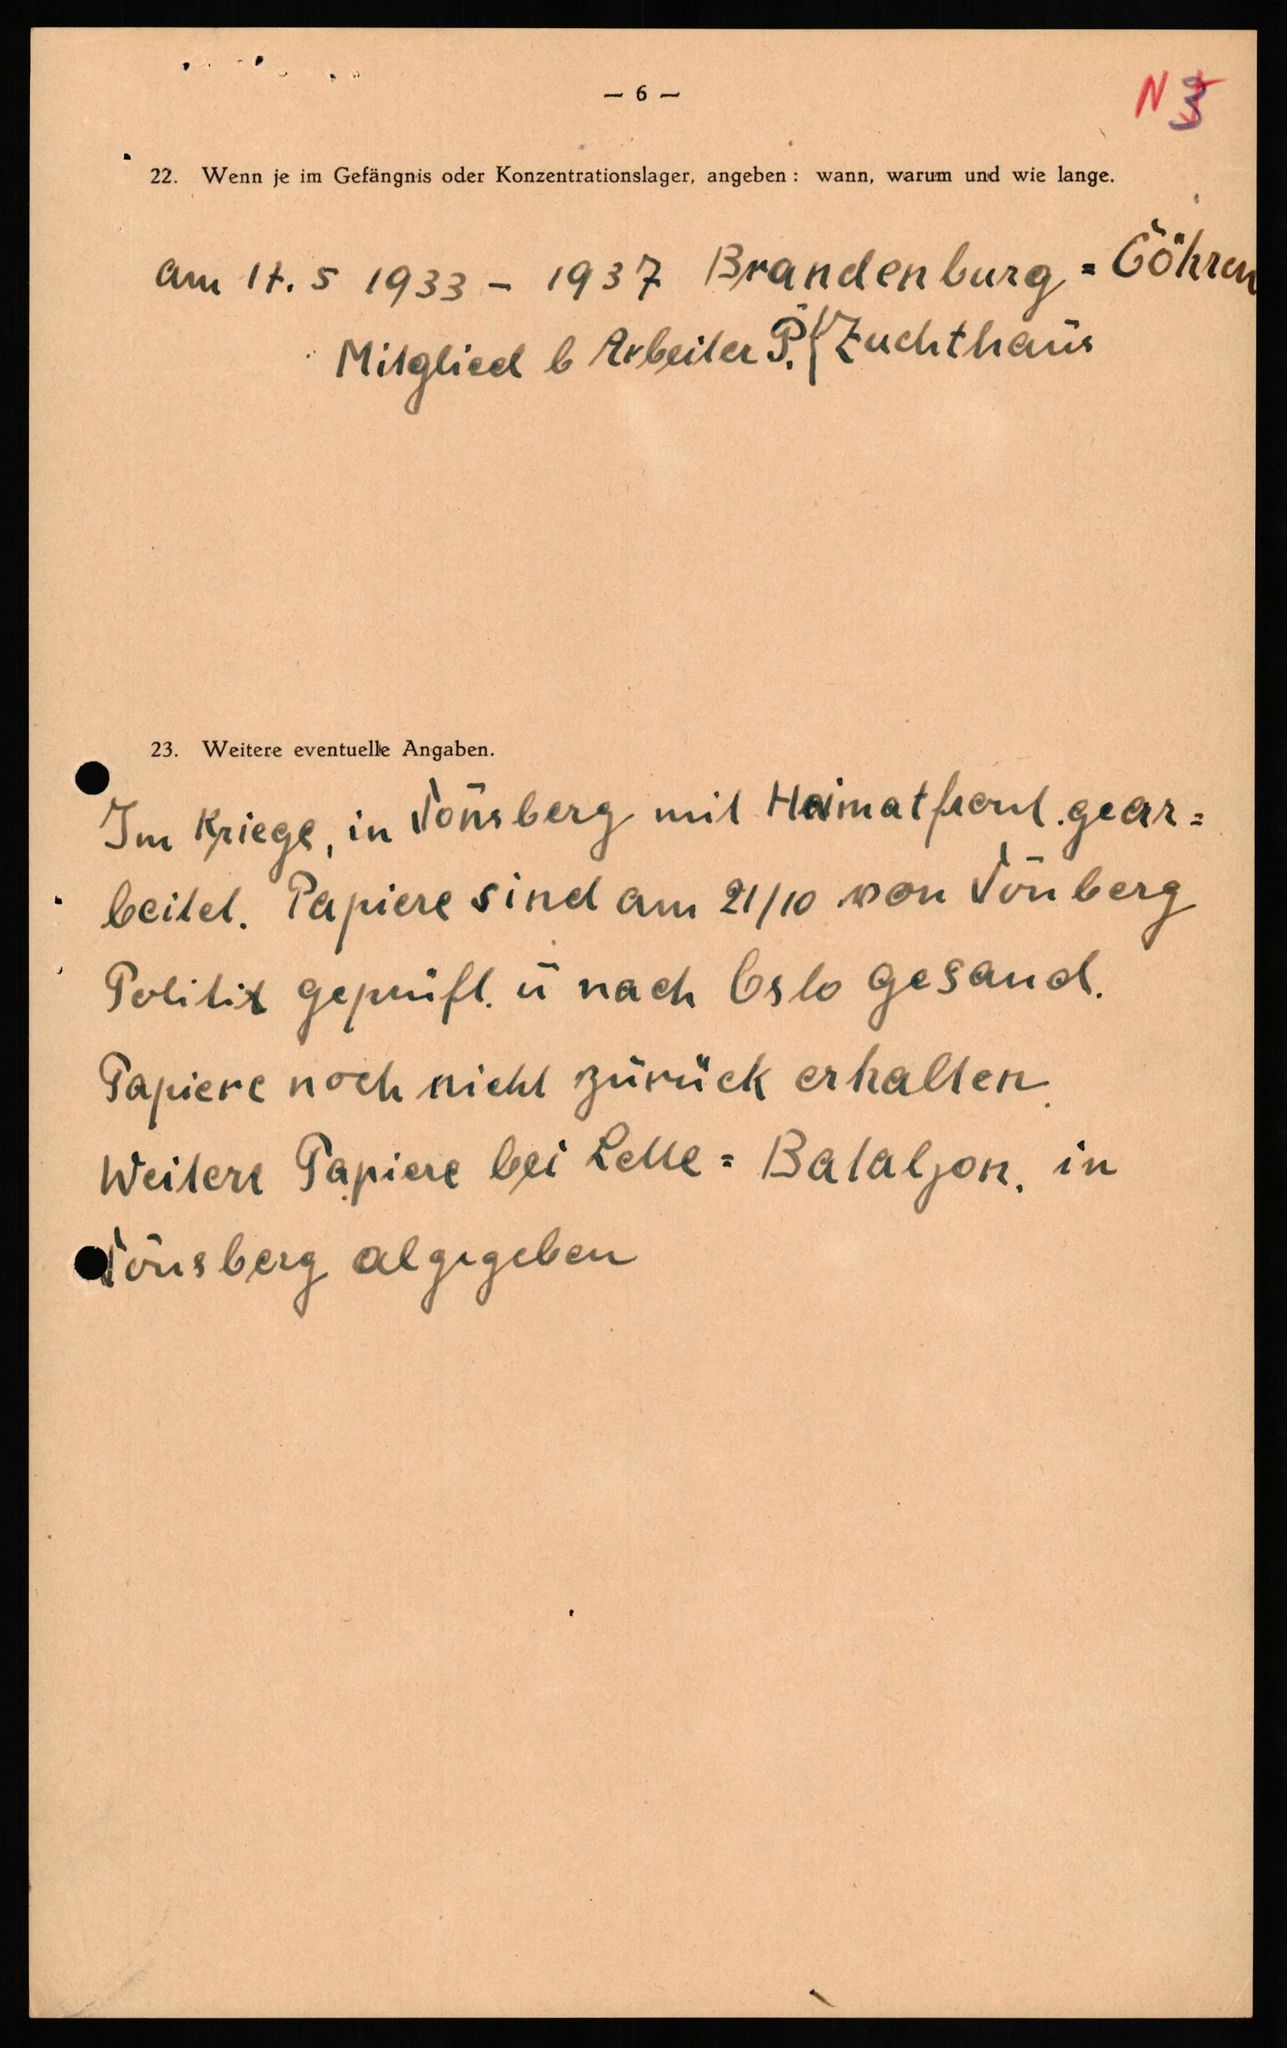 — 6 —
N 3
22. Wenn je im Gefängnis oder Konzentrationslager, angeben: wann, warum und wie lange.
am 17. 5 1933 – 1937 Brandenburg = Göhren
Mitglied b Arbeiter P. { Zuchthaus
23. Weitere eventuelle Angaben.
Im Kriege, in Tönsberg mit Heimatfront. gear=
beitet. Papiere sind am 21/10 von Tönberg
Politi geprüft. u nach Oslo gesand.
Papiere noch nicht zurück erhalten.
Weitere Papiere bei Lette = Bataljon. in
Tönsberg abgegeben